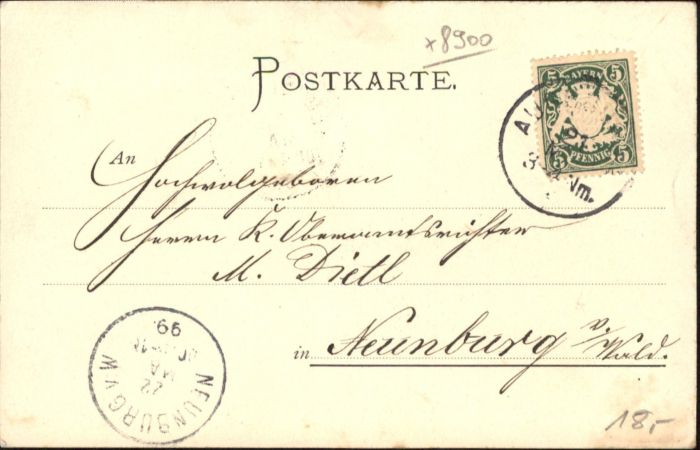 x8900
POSTKARTE.
5 BAYERN 5
5 PFENNIG 5
AU
Nm.
An Hochwolgeboren
Herrn K. Oberamtsrichter
M. Dietl
in Neunburg v/Wald.
NEUNBURG V W
22
MA
99.
18,-